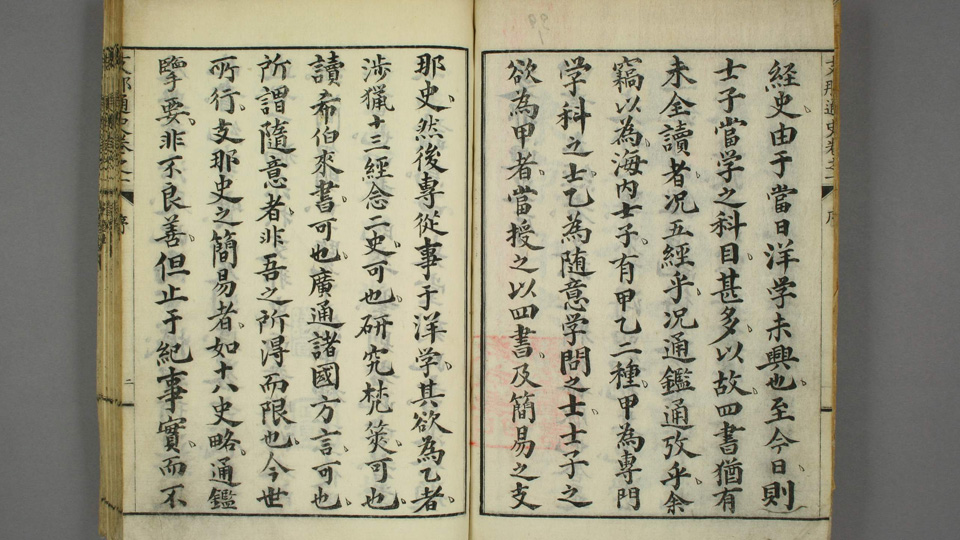 経史由于當日洋学未興也至今日則
士子當学之科目甚多以故四書猶有
未全讀者况五經乎况通鑑通攷乎余
竊以為海内士子有甲乙二種甲為專門
学科之士乙為随意学問之士士子之
欲為甲者當授之以四書及簡易之支
那史然後專從事于洋学其欲為乙者
渉獵十三經念二史可也研究梵筴可也
讀希伯來書可也廣通諸國方言可也
所謂隨意者非吾之所得而限也今世
所行支那史之簡易者如十八史略通鑑
擥要非不良善但止于紀事實而不
支那通史卷之一
序
二